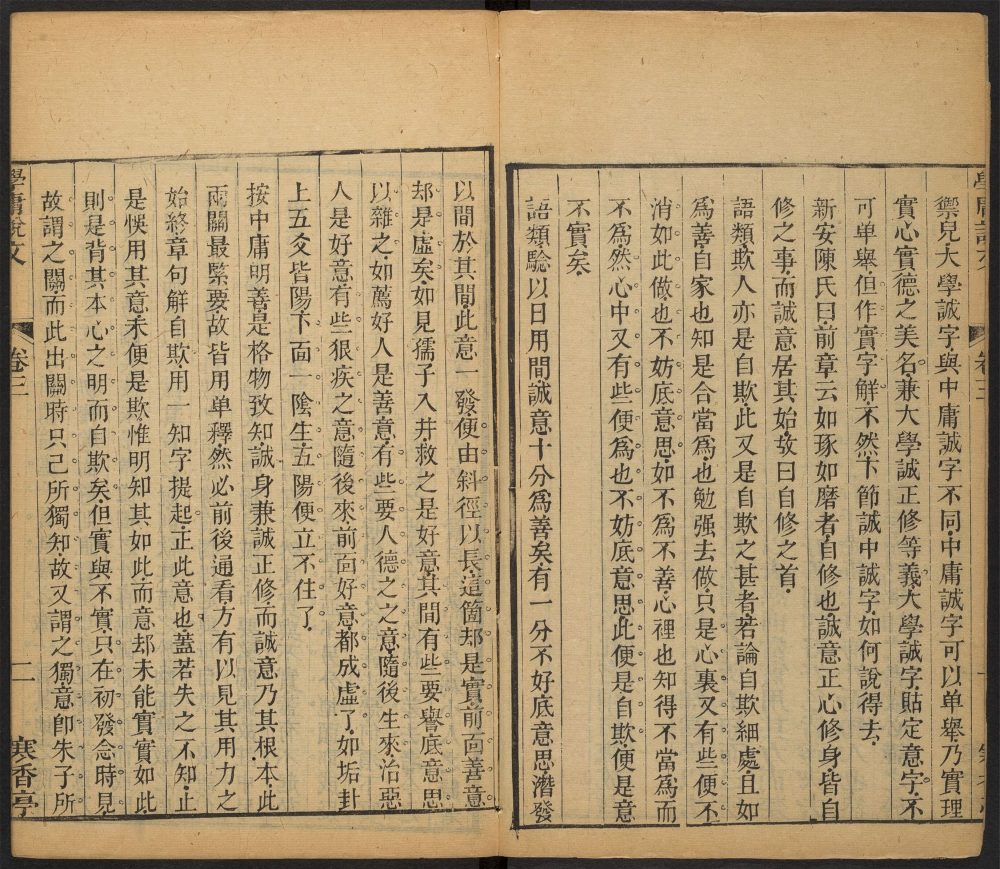 禦兒大學誠字與中庸誠字不同中庸誠字可以单舉乃實理
實心實德之美名兼大學誠正修等義大學誠字貼定意字不
可单舉但作實字解不然下節誠中誠字如何說得去
新安陳氏曰前章云如琢如磨者自修也誠意正心修身皆自
修之事而誠意居其始故曰自修之首
語類欺人亦是自欺此又是自欺之甚者若論自欺細處且如
爲善自家也知是合當爲也勉强去做只是心裏又有些便不
消如此做也不妨底意思如不爲不善心裡也知得不當爲而
不爲然心中又有些便爲也不妨底意思此便是自欺便是意
不實矣
語類驗以日用間誠意十分爲善矣有一分不好底意思潛發
以間於其間此意一發便由斜徑以長這箇却是實前面善意
却是虛矣如見孺子入井救之是好意其間有些要譽底意思
以雜之如薦好人是善意有些要人德之之意隨後生來治惡
人是好意有些狠疾之意隨後來前面好意都成虛了如垢卦
上五爻皆陽下面一陰生五陽便立不住了
按中庸明善是格物致知誠身兼誠正修而誠意乃其根本此
兩關最緊要故皆用单釋然必前後通看方有以見其用力之
始終章句解自欺用一知字提起正此意也蓋若失之不知止
是悞用其意未便是欺惟明知其如此而意却未能實實如此
則是背其本心之明而自欺矣但實與不實只在初發念時見
故謂之關而此出關時只己所獨知故又謂之獨意卽朱子所
學庸說文
卷三
二
寒香亭